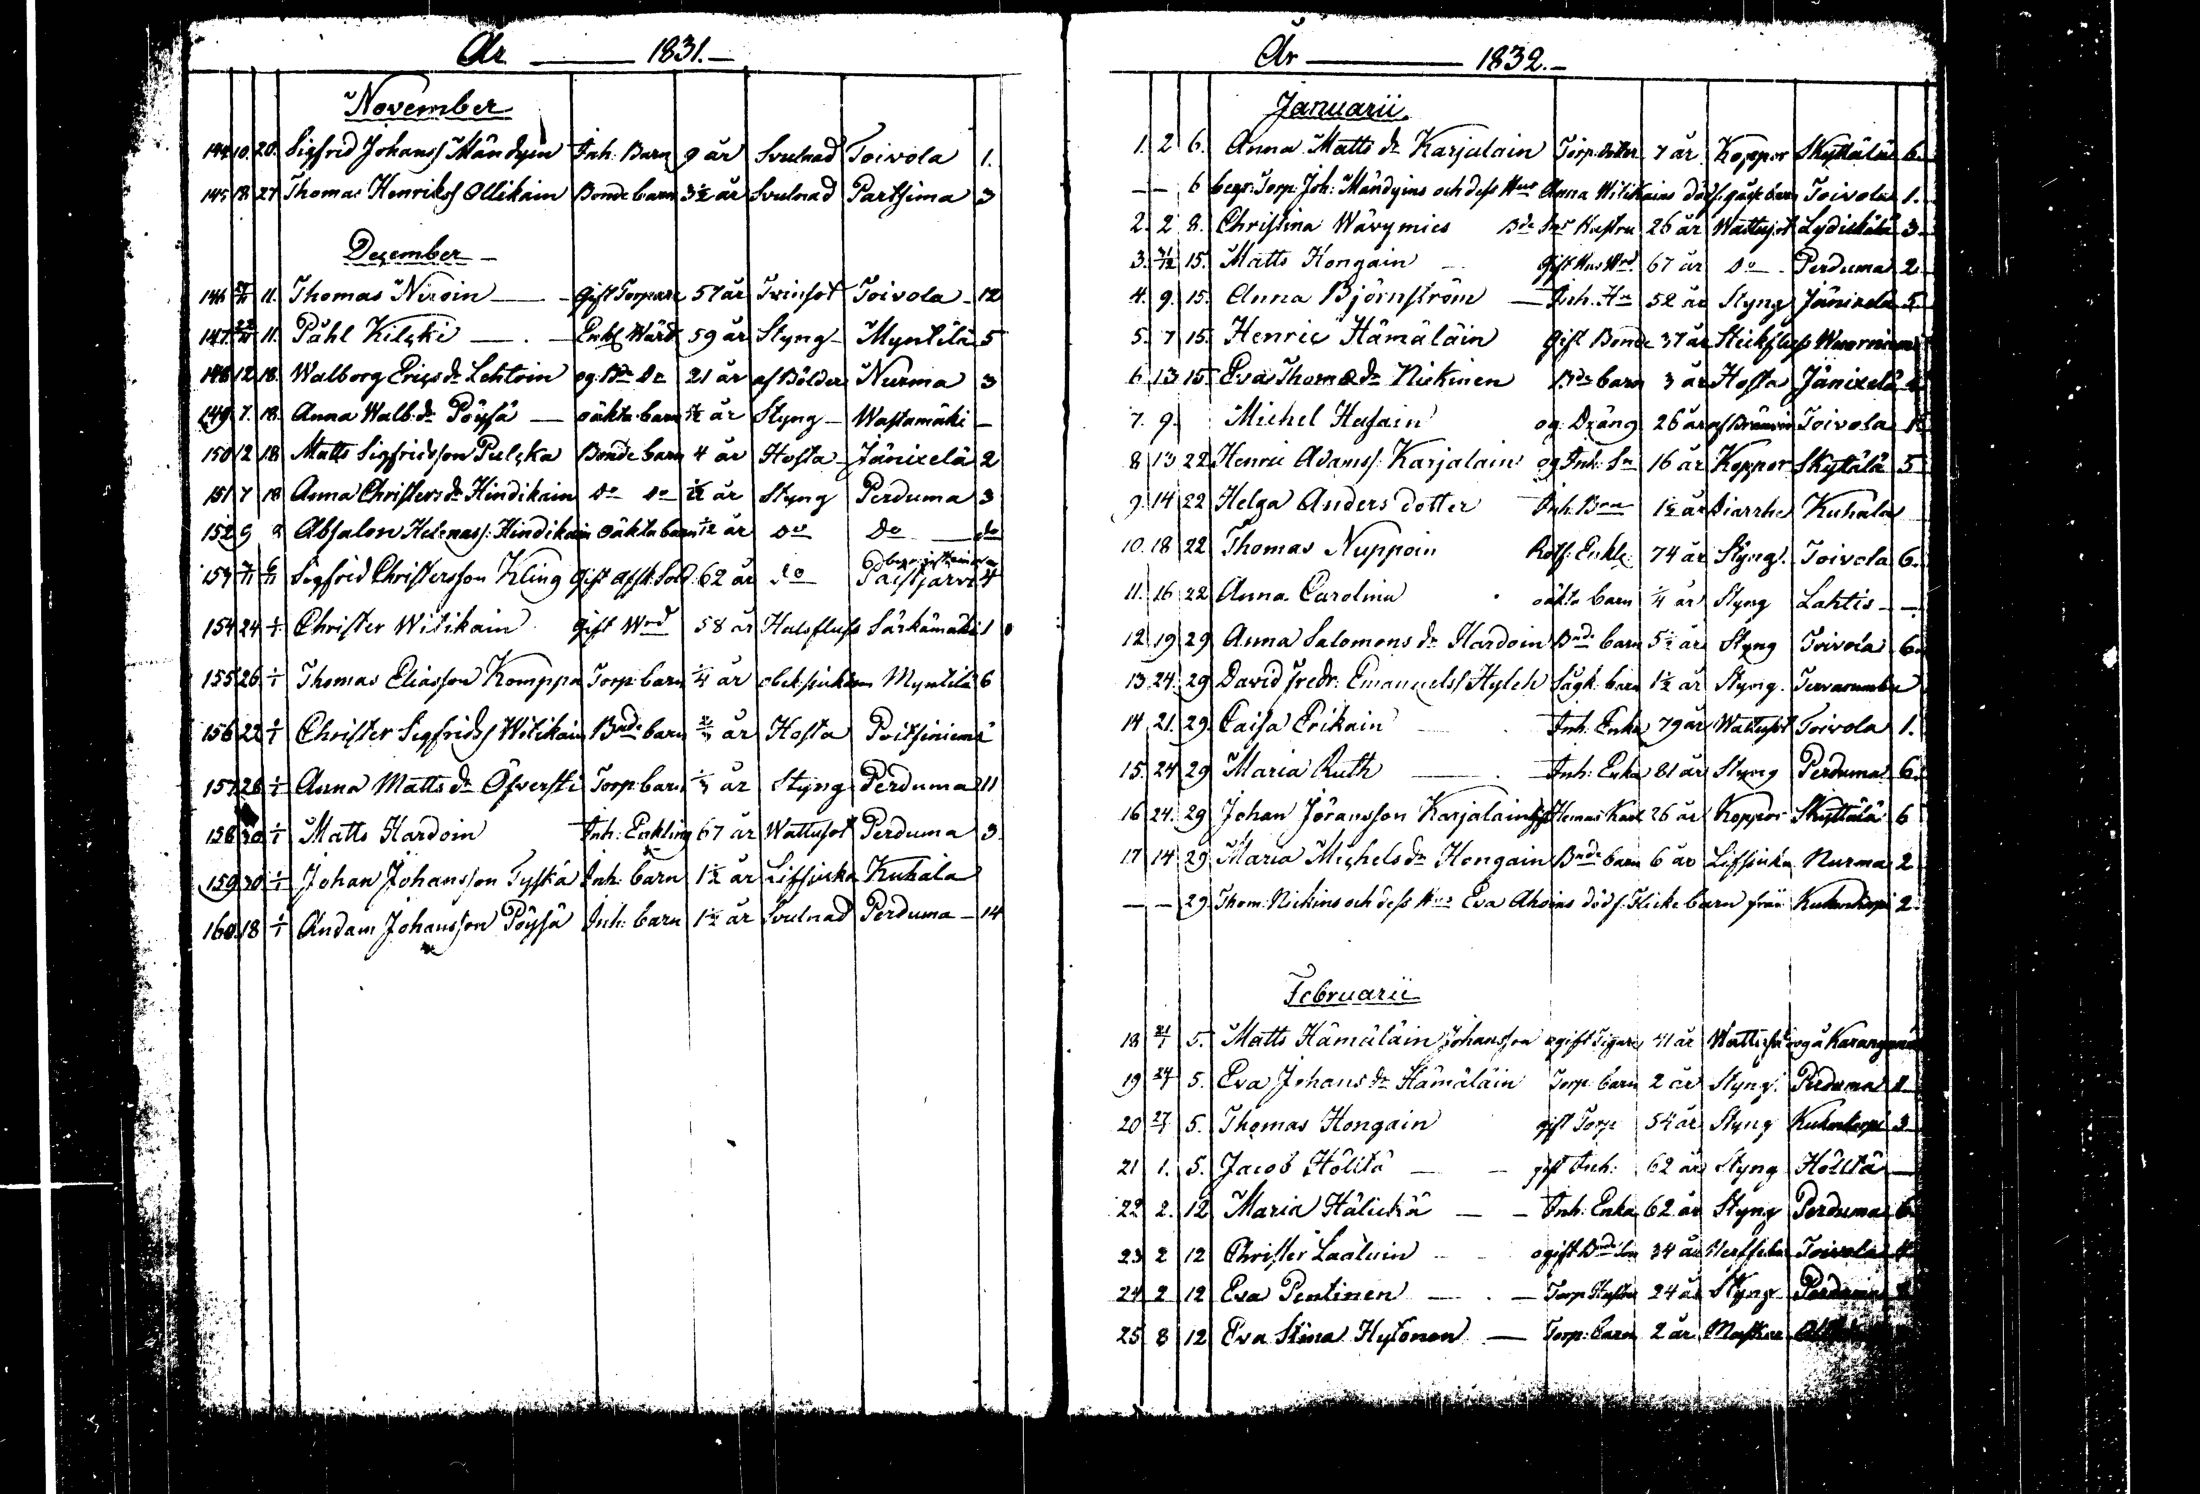 År 1831.
November
144 10. 20. Sigfrid Johanss Mändyin Inh: Barn 9 år Svulnad Toivola 1.
145 18 27 Thomas Henrikss Ollikain Bonde barn 3½ år Svulnad Partsima 3
December
146 11. Thomas Niroin gift Torpare 57 år Tvinsot Toivola 12
147 11. Påhl Kilski Enkl Wärd 59 år Styng Myntilä 5
148 12 18. Walborg Erics dr Lehtoin og: Bde Dr 21 år af Bölder Nurma 3
149 7. 18. Anna Walb: dr Pöysä oäkta barn år Styng Wastamäki
150 12 18 Matts Sigfridsson Pulska Bonde barn 4 år Hosta Jänixelä 2
151 7 18 Anna Christers dr Hindikain do do ½ år Styng Perduma 3
152 9 Absalon Helenass: Hindikain oäkta barn år do do do
153 Sigfrid Christersson Kling gift afsk: Sold: 62 år do Paistjärvi 4
154 24 1/1 Christer Witikain gift Wrd 58 år Halsfluss Särkämäki 1
155 26 1/1 Thomas Eliasson Komppa Torp: barn ¼ år obek: siukdom Myntilä 6
156 22 1/1 Christer Sigfrids Witikain Bnde barn år Hosta Poitsiniemi
157 26 1/1 Anna Matts dr Öfverski Torp: barn år Styng Perduma 11
158 30 1/1 Matts Hardoin Inh: Enkling 67 år Wattusot Perduma 3.
159 30 1/1 Johan Johansson Tyskä Inh: barn 1½ år Lifssiuka Kuhala
160. 18 1/1 Andam Johansson Pöysä Inh: barn 1½ år Svulnad Perduma 14
År 1832.
Januarii.
1. 2 6. Anna Matts dr Karjalain Torp: dotter 7 år Koppor Skyttälä 6.
6 begr: Torp: Joh: Mändyins och dess Hus Anna Witikains dödf. gåsse barn Toivola 1.
2. 2 8. Christina Wävymies Bde Hustru 26 år Wattusot 3.
3. 15. Matts Hongain gift Hus Wrd. 67 år do Perduma 2
4. 9. 15. Anna Björnström Inh: 52 år Styng Jänixelä 5
5. 7 15. Henric Hämäläin gift Bonde 37 år
6 13 15 Eva Thomæ dr Nickinen Bde barn 3 år Hosta Jänixelä
7. 9. Michel Hasain og: Dräng 26 år af Toivola
8 13 22 Henric Adamss: Karjalain og Inh: Sn 16 år Koppor Skyttälä 5
9. 14 22 Helga Anders dotter Inh: Barn 1½ år Diarrhe Kuhala
10. 18 22 Thomas Nuppoin Enkl: 74 år Styng. Toivola 6.
11. 16 22 Anna Carolina oäkta barn ¼ år Styng Lahtis
12 19 29 Anna Salomons dr Hardoin Bnde barn 5½ år Styng Toivola 6.
13 24. 29 David Fredr: Emanuelss Hyleh Sågk: barn 1½ år Styng.
14 21. 29. Caisa Erikain Inh: Enka 79 år Wattusot Toivola 1.
15. 24 29 Maria Ruth Inh: Enka 81 år Styng Perduma 6.
16 24. 29 Johan Jöransson Karjalain 26 år Koppor Skyttälä 6
17 14 29 Maria Michels dr Hongain Bnde barn 6 år Lifssiuka Nurma 2
29 Thom: Nickins och dess Hus Eva Ahoins dödf. Flicke barn från 2.
Februarii
18 5. Matts Hämäläin Johansson ogift 41 år
19 24/1 5. Eva Johans dr Hämäläin Torp: barn 2 år Styng. Perduma
20 27/1 5. Thomas Hongain gift Torp 54 år Styng 3
21 1. 5. Jacob Höltä gift Inh: 62 år Styng Höltä
22 2. 12 Maria Hälickä Inh: Enka 62 år Styng Perduma 6.
23 2 12 Christer Laaluin ogift Bnde Son 34 år Toivola
24 2 12 Eva Pentinen Torp: Hustru 24 år Styng Perduma
25 8 12 Eva Stina Hytönen Torp: barn 2 år